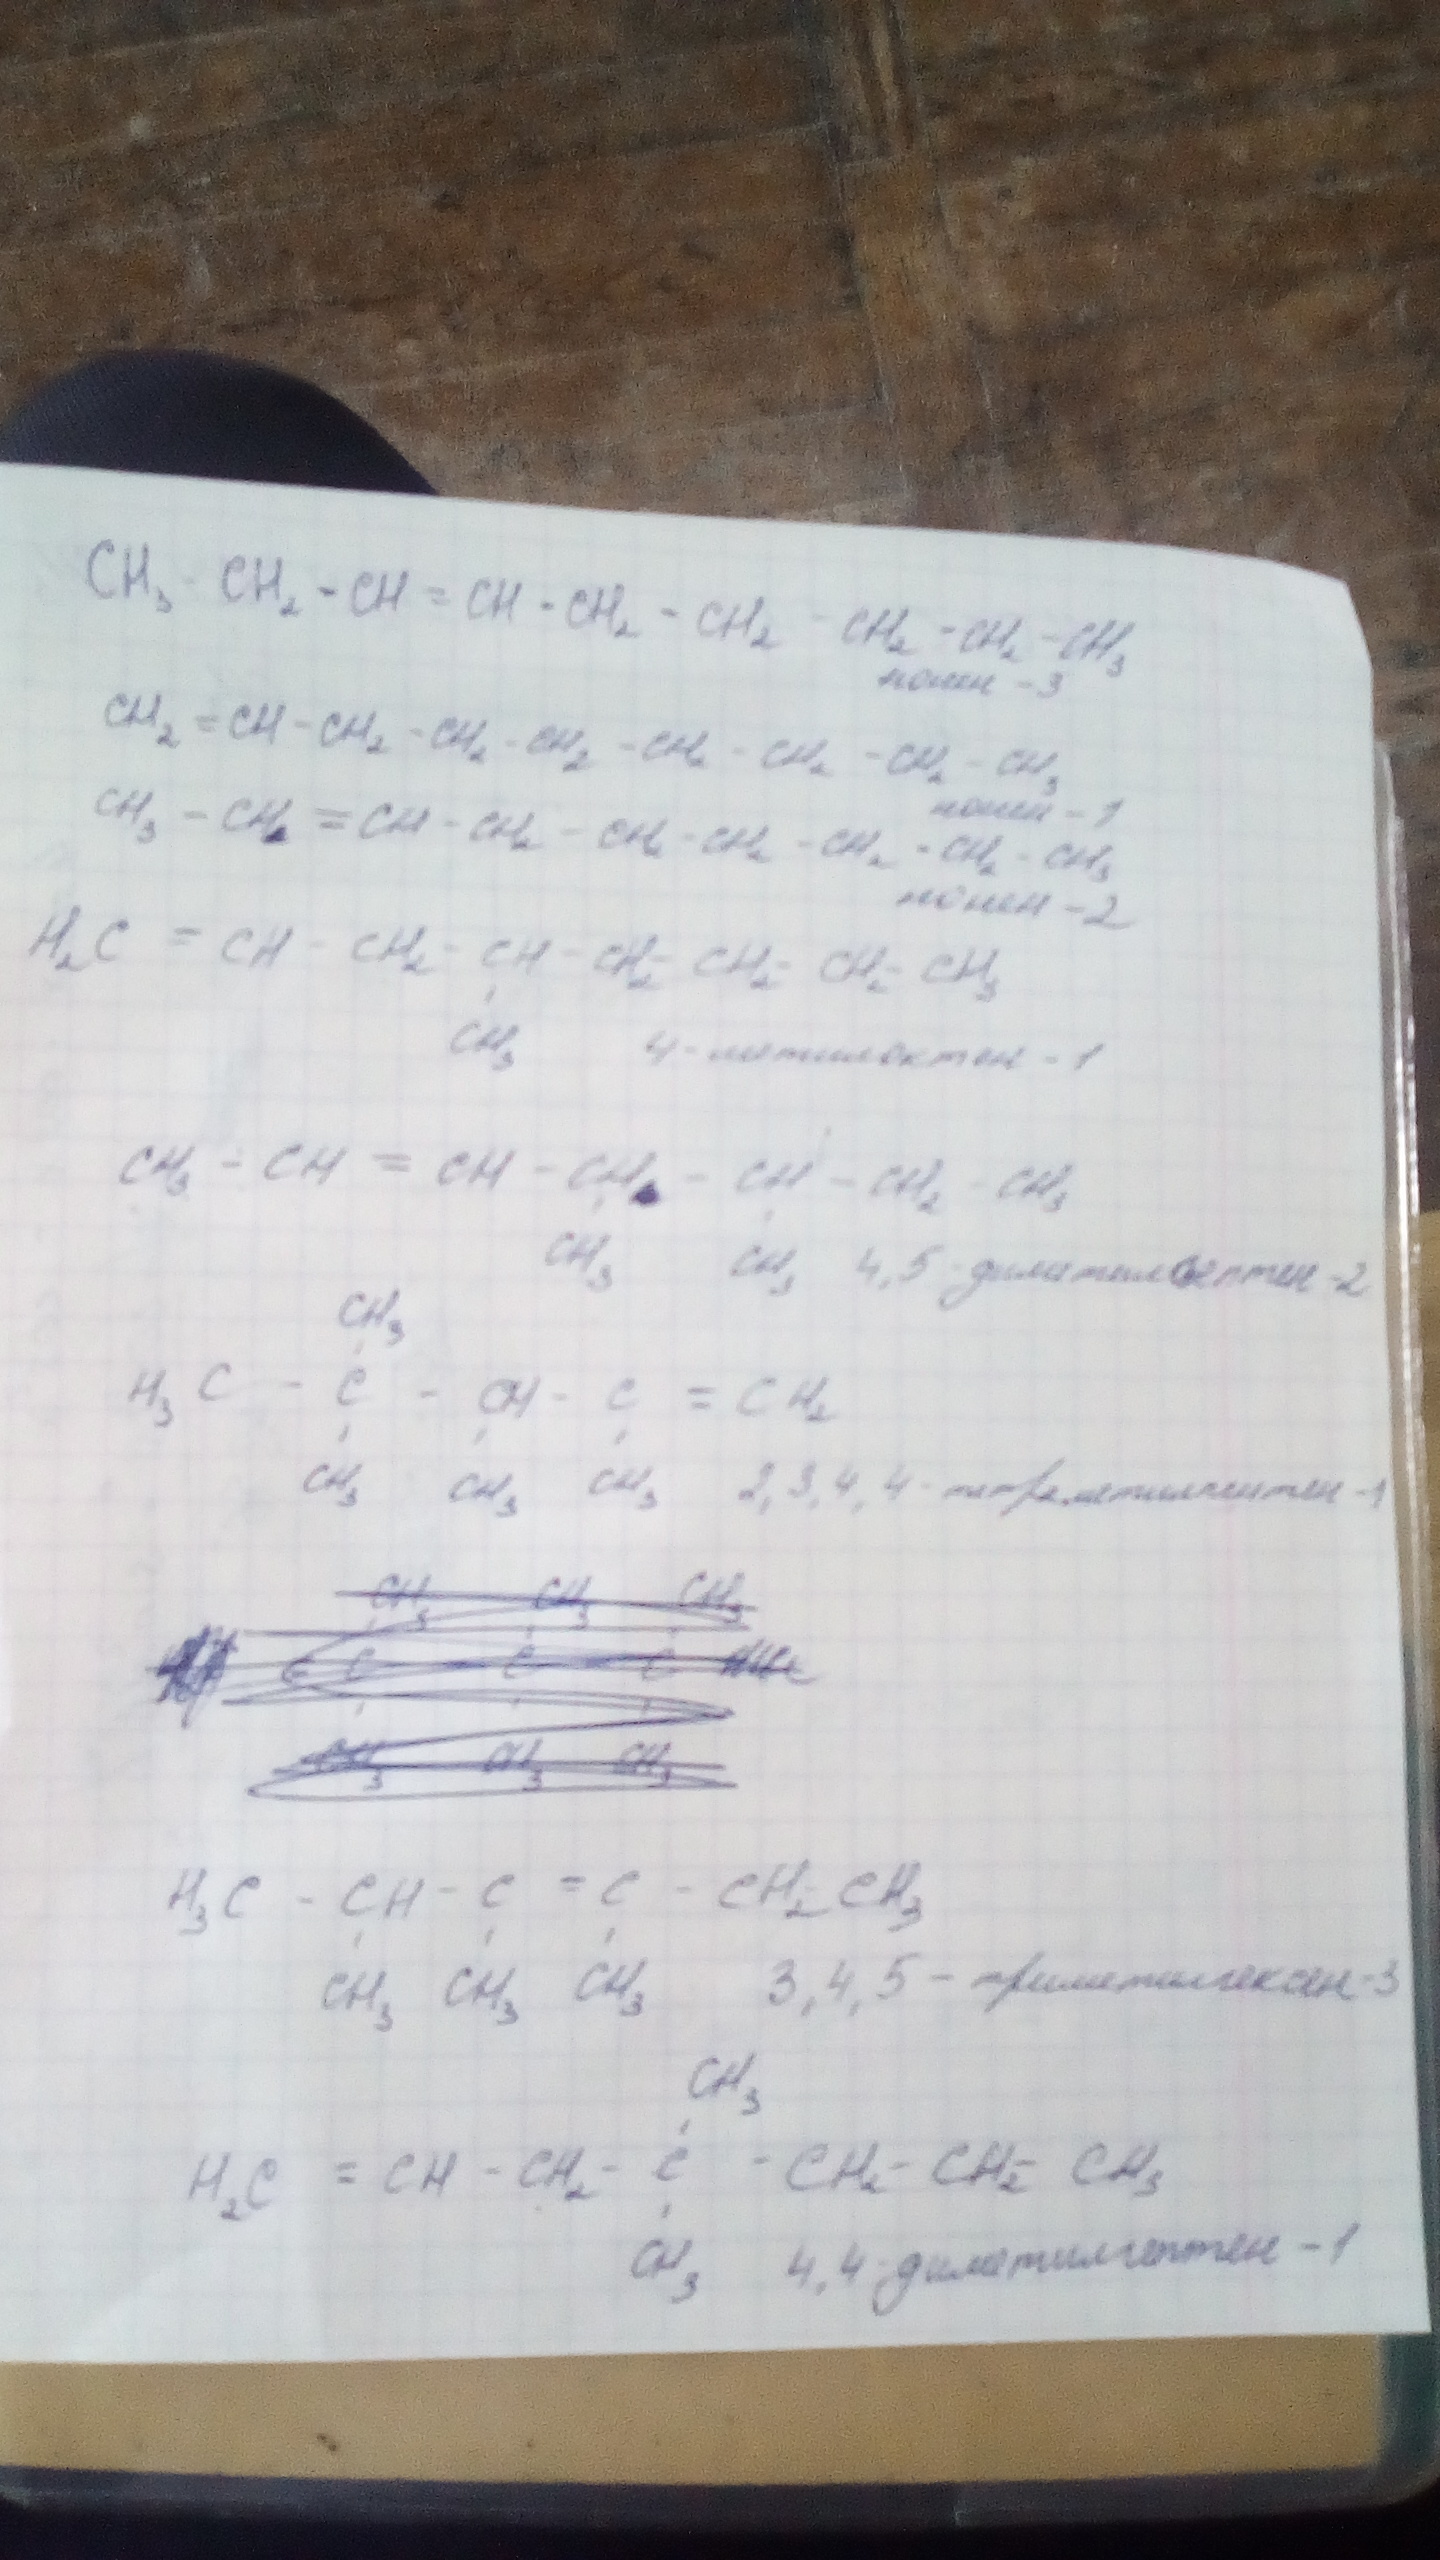 CH₃ - CH₂ - CH = CH - CH₂ - CH₂ - CH₂ - CH₂ - CH₃
нонен - 3
CH₂ = CH - CH₂ - CH₂ - CH₂ - CH₂ - CH₂ - CH₂ - CH₃
нонен - 1
CH₃ - CH = CH - CH₂ - CH₂ - CH₂ - CH₂ - CH₂ - CH₃
нонен - 2
H₂C = CH - CH₂ - CH - CH₂ - CH₂ - CH₂ - CH₃
CH₃ 4-метилоктен - 1
CH₃ - CH = CH - CH - CH - CH₂ - CH₃
CH₃ CH₃ 4,5-диметилгептен-2
CH₃
H₃C - C - CH - C = CH₂
CH₃ CH₃ CH₃ 2,3,4,4-тетраметилпентен-1
CH₃ CH₃ CH₃
C C C
CH₃ CH₃ CH₃
H₃C - CH - C = C - CH₂ - CH₃
CH₃ CH₃ CH₃ 3,4,5 - триметилгексен-3
CH₃
H₂C = CH - CH₂ - C - CH₂ - CH₂ - CH₃
CH₃ 4,4-диметилгептен - 1